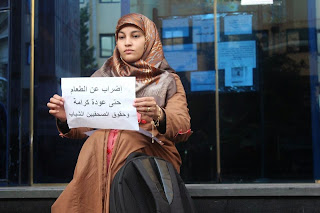 إضراب عن الطعام
حتى عودة كرامة
وحقوق الصحفيين الشباب